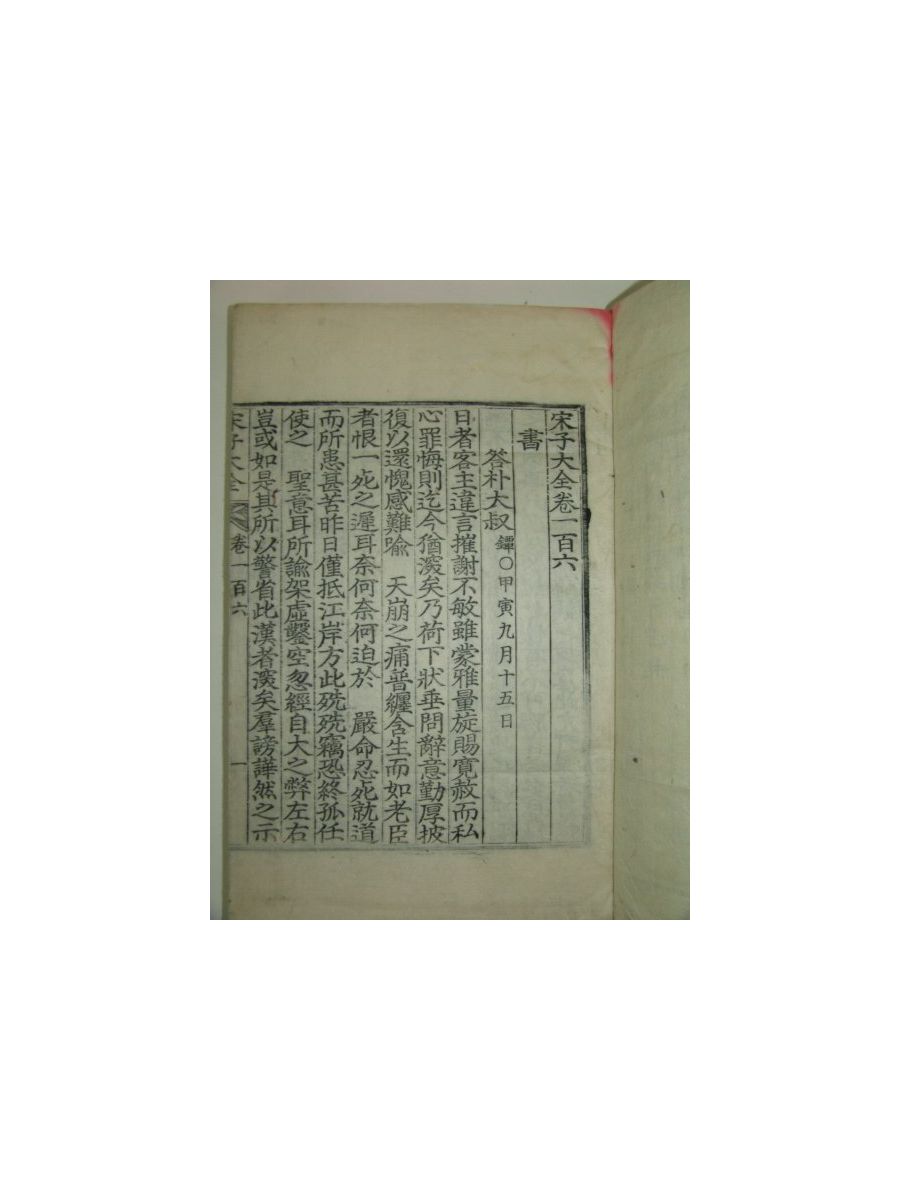 宋子大全卷一百六
書
答朴大叔 鐔○甲寅九月十五日
日者客主違言摧謝不敏雖蒙雅量旋賜寬赦而私
心罪悔則迄今猶深矣乃荷下狀垂問辭意勤厚披
復以還愧感難喩 天崩之痛普纏含生而如老臣
者恨一死之遲耳奈何奈何迫於 嚴命忍死就道
而所患甚苦昨日僅抵江岸方此殑殑竊恐終孤任
使之 聖意耳所諭架虛鑿空忽經自大之弊左右
豈或如是其所以警省此漢者深矣羣謗譁然之示
宋子大全 卷一百六 一